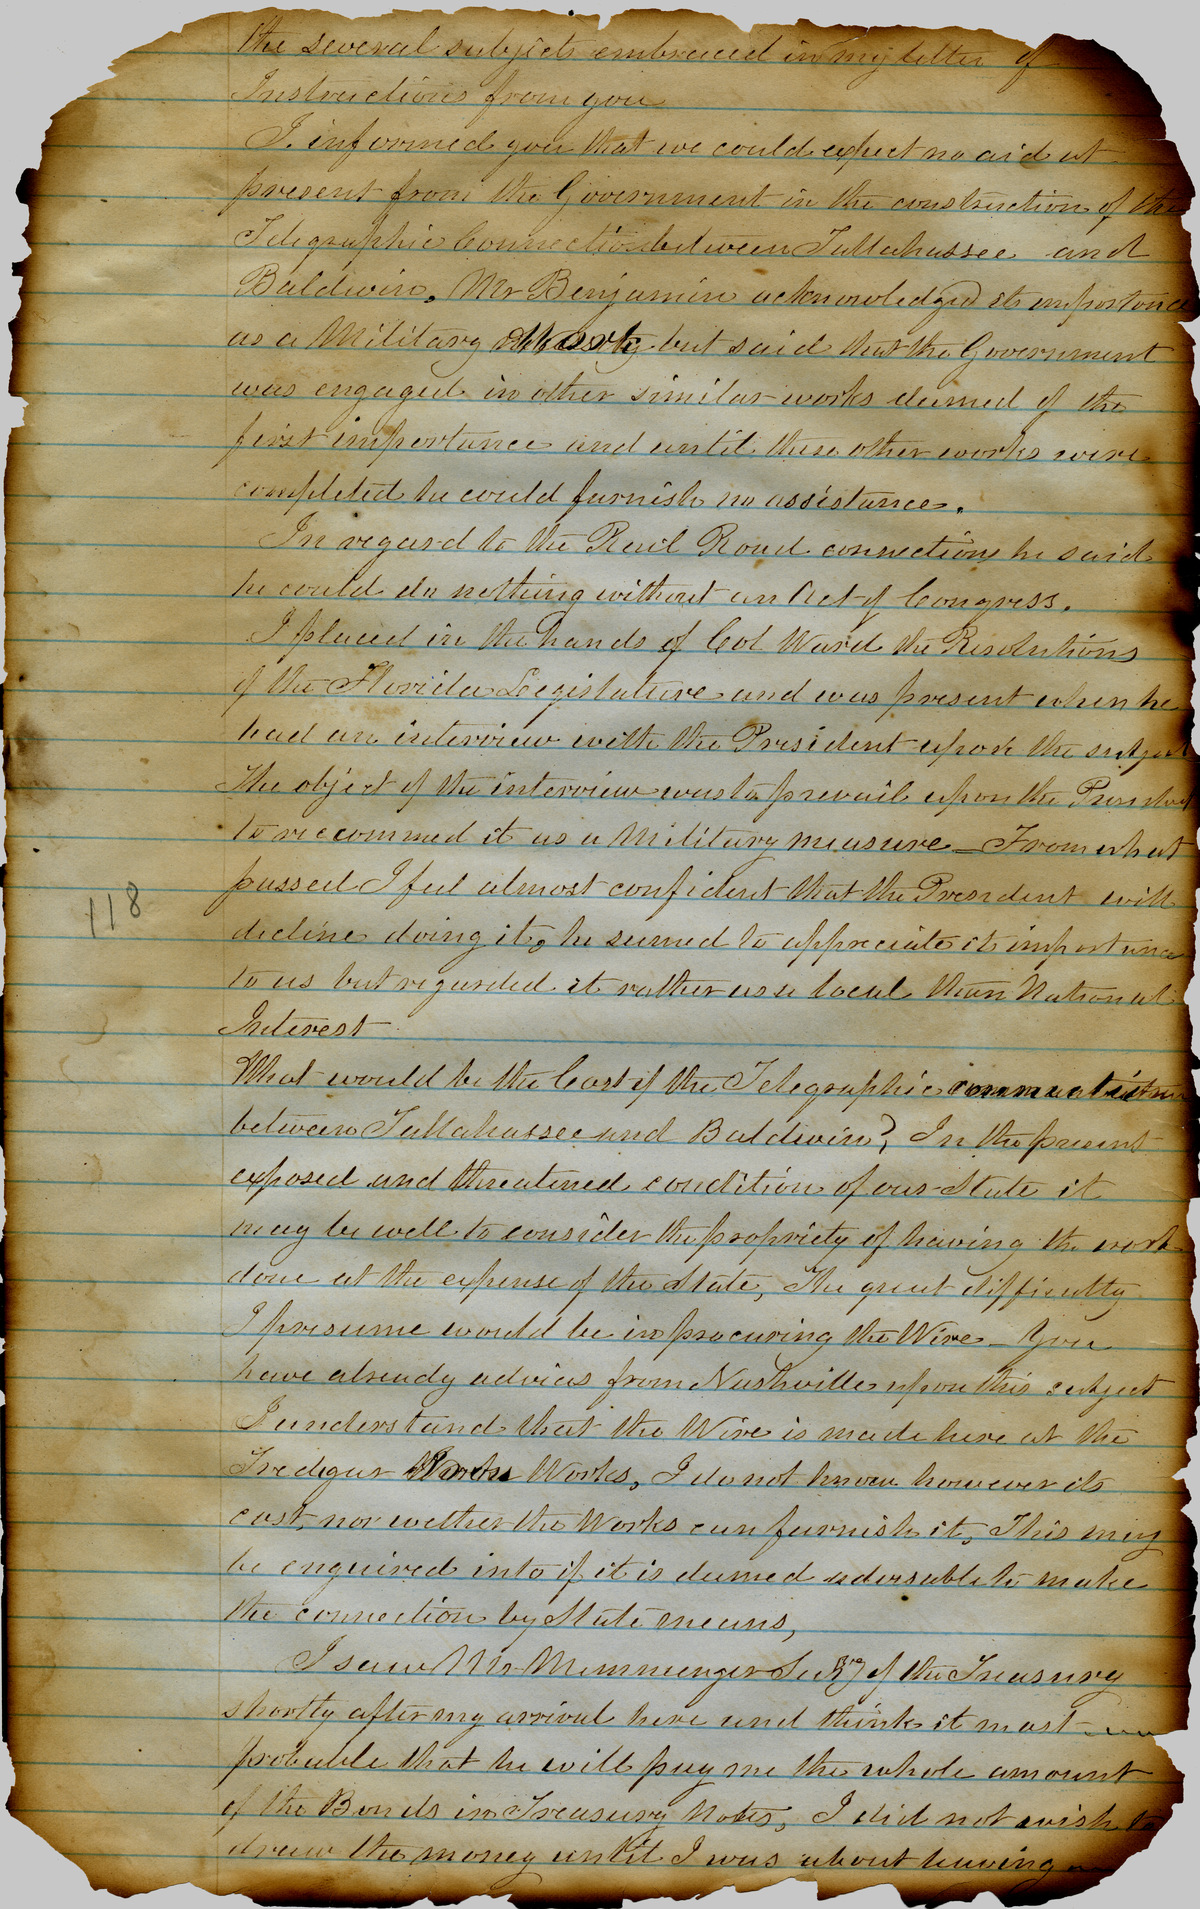 the several subjects embraced in my letter of
Instructions from you
I. informed you that we could expect no aid at
present from the Government in the construction of the
Telegraphic Connection between Tallahassee and
Baldwin. Mr Benjamin acknowledged its importance
as a Military Work but said that the Government
was engaged in other similar works deemed of the
first importance and until these other works were
completed he could furnish no assistance.
In regard to the Rail Road connection he said
he could do nothing without an Act of Congress.
I placed in the hands of Col Ward the Resolutions
of the Florida Legislature and was present when he
had an interview with the President upon the subject
the object of the interview was to prevail upon the President
to recommed it as a Military measure — From what
passed I feel almost confident that the President will
decline doing it, he seemed to appreciate it importance
to us but regarded it rather as a local than National
Interest
118
What would be the Cost of the Telegraphic
between Tallahassee and Baldwin? In the present
exposed and threatened condition of our State it
may be well to consider the propriety of having the work
done at the expense of the State, The great difficulty
I presume would be in procuring the Wire — You
have already advices from Nashville upon this subject
I understand that the Wire is made here at the
Tredegar Works, I do not know however its
cost, nor wether the Works can furnish it, This may
be enquired into if it is deemed adviseable to make
the connection by State means,
I saw Mr Memmenger Secry of the Treasury
shortly after my arrival here and think it most
probable that he will pay me the whole amount
of the Bonds in Treasury Notes, I did not wish to
draw the money until I was about leaving